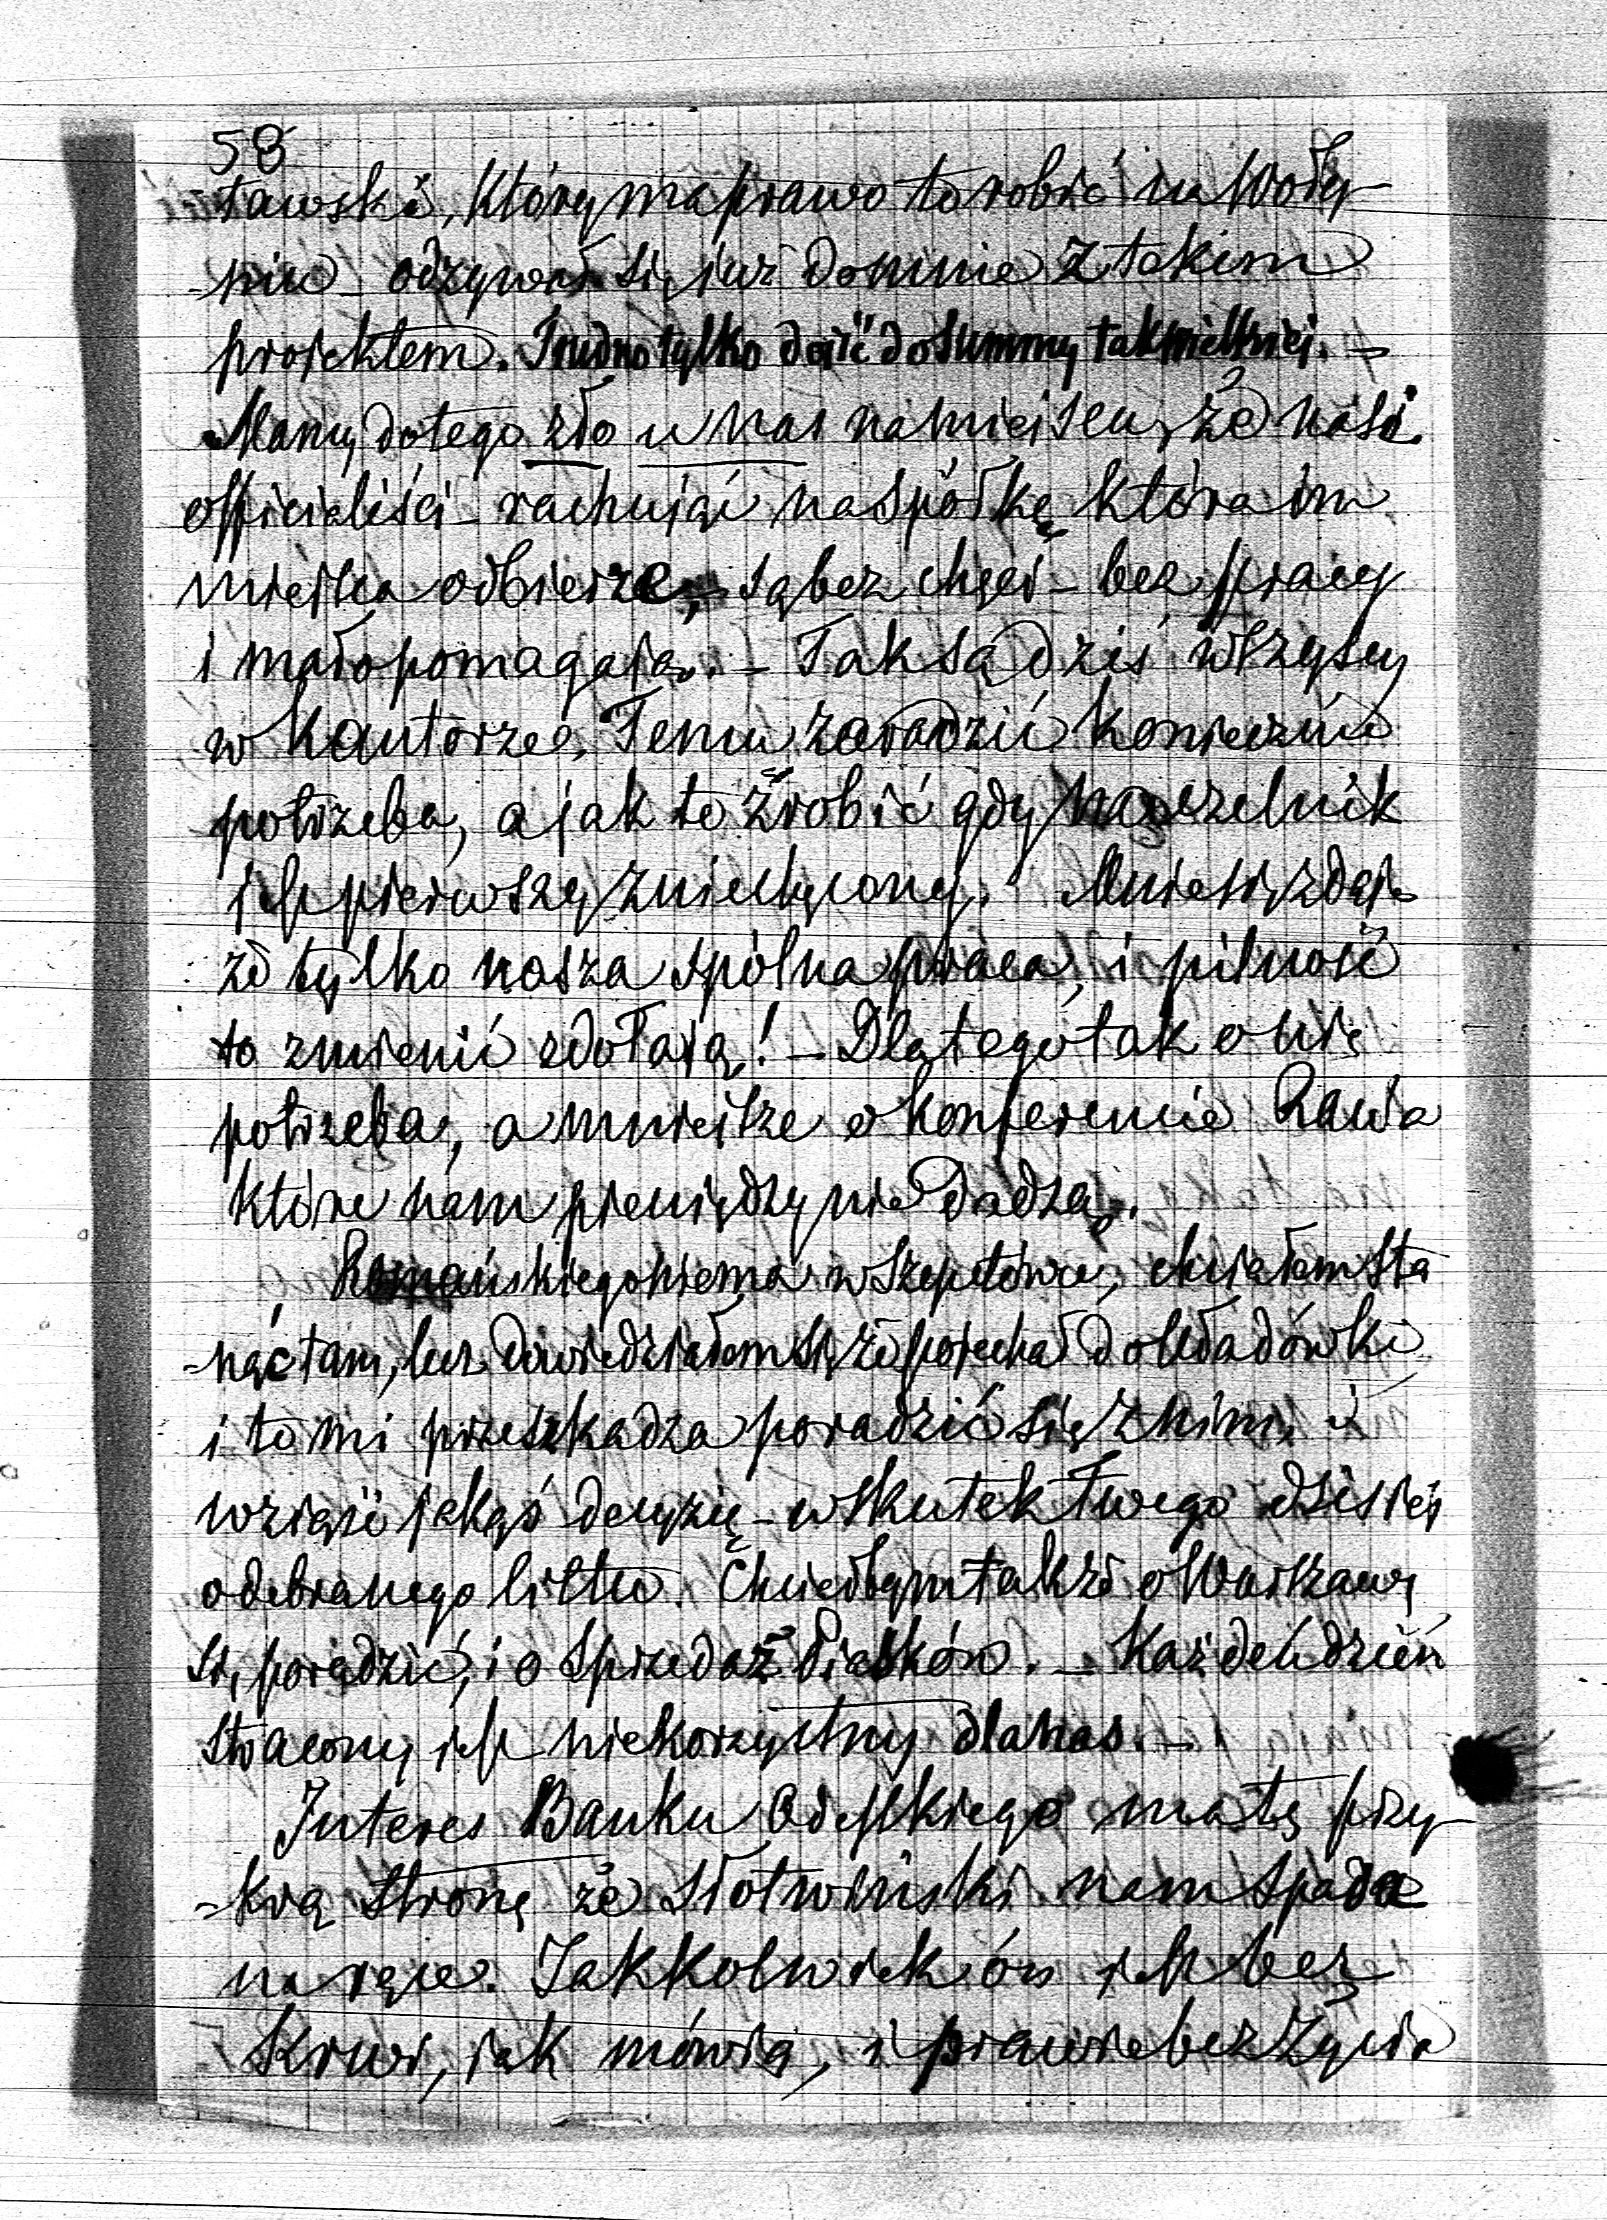 58
tawski, który ma prawo to robić na Woły-
-niu - odzywał się już do mnie z takim
projektem. Trudno tylko dojść do summy tak wielkiej. -
Mamy do tego zło u nas na miejscu, że nasi
officialiści - rachując na spółkę która im
miejsca odbierze, - są bez chęci - bez pracy
i mało pomagają. - Tak są dziś wszyscy
w kantorze. Temu zaradzić koniecznie
potrzeba, a jak to zrobić gdy naczelnik
jest pierwszy zniechęcony. Mnie się zdaje
że tylko nasza spólna praca, i pilność
to zmienić zdołają! - Dla tego tak o nię
potrzeba, a mniejsze o konferencie
które nam pieniędzy nie dadzą.
Romańskiego niema w Szepetówce, chciałem sta
-nąć tam, lecz dowiedziałem się że pojechał do Kładówki
i to mi przeszkadza poradzić się z nim, i
wziąść jakąś decyzię - w skutek Twego dzisiej
odebranego listu. Chciałbym także o Warszawę
się poradzić, i o sprzedaż Piasków. - Każden dzień
stracony jest niekorzystny dla nas. -
Interes Banku Odesskiego ma tę przy-
-krą stronę że Słotwiński nam spada
na ręce. Jakkolwiek ów jest bez
krwi, jak mówią, i prawie bez życia